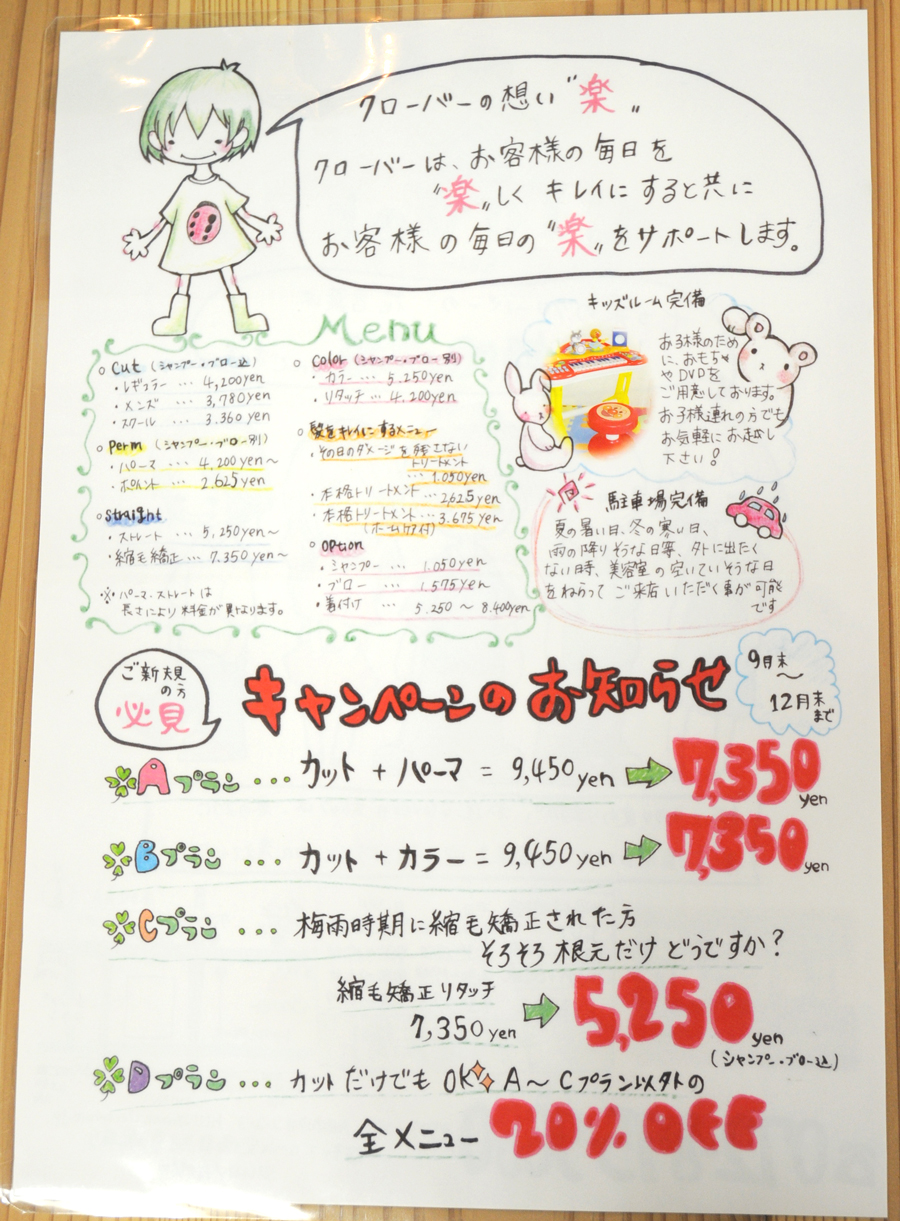 クローバーの想い"楽"
クローバーは、お客様の毎日を
"楽"しく キレイにすると共に
お客様の毎日の"楽"をサポートします。
Menu
○ Cut (シャンプー・ブロー込)
・レギュラー … 4,200yen
・メンズ … 3,780yen
・スクール … 3.360 yen
○ Perm (シャンプー・ブロー別)
・パーマ … 4,200 yen〜
・ポイント … 2.625 yen
○ Straight
・ストレート … 5,250yen〜
・縮毛矯正 … 7.350 yen〜
※ パーマ・ストレートは
長さにより 料金が異なります。
○ Color (シャンプー・ブロー別)
・カラー … 5.250yen
・リタッチ … 4.200yen
○ 髪をキレイにするメニュー
・その日のダメージを残さない
トリートメント
… 1.050 yen
・本格トリートメント … 2,625yen
・本格トリートメント … 3.675 yen
(ホームケア付)
○ Option
・シャンプー … 1.050yen
・ブロー … 1,575yen
・着付け … 5.250 〜 8.400yen
キッズルーム完備
お子様のため
に、おもちゃ
やDVDを
ご用意しております。
お子様連れの方でも
お気軽に お越し
下さい!
駐車場完備
夏の暑い日、冬の寒い日、
雨の降りそうな日等、外に出たく
ない時、美容室の空いていそうな日
をねらって ご来店いただく事が可能
です
ご新規
の方
必見
キャンペーンの お知らせ
9月末
〜
12月末
まで
Aプラン … カット + パーマ = 9,450yen → 7,350yen
Bプラン … カット + カラー = 9,450yen → 7,350yen
Cプラン … 梅雨時期に縮毛矯正された方
そろそろ根元だけ どうですか?
縮毛矯正リタッチ
7,350 yen → 5,250yen
(シャンプー・ブロー込)
Dプラン … カットだけでも OK A〜Cプラン以外の
全メニュー 20% OFF